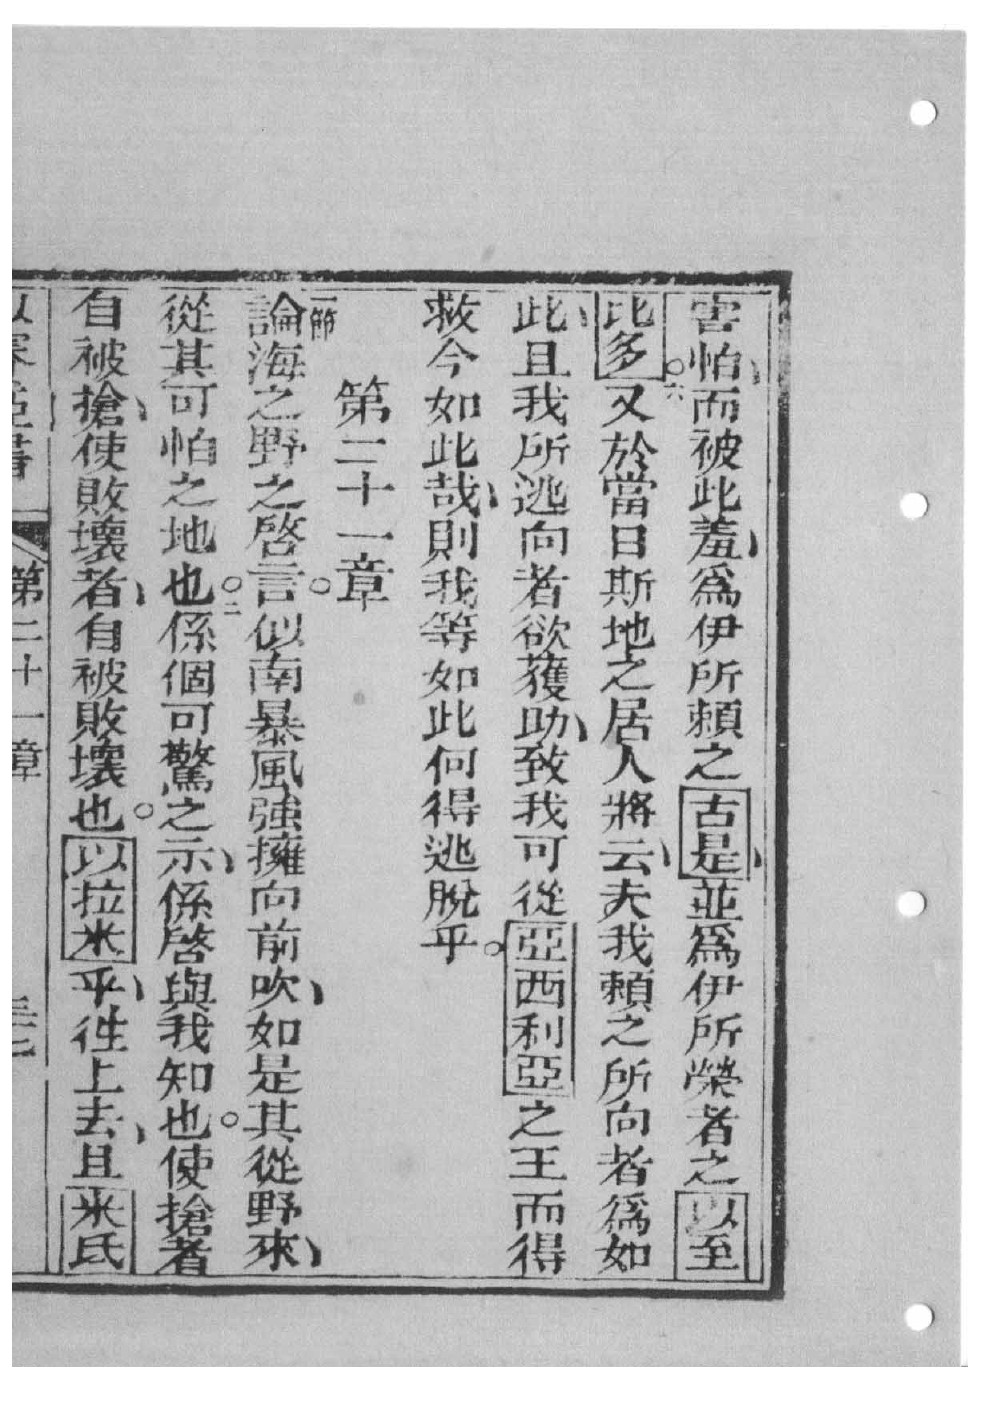 害怕、而被此羞、爲伊所頼之古是、並爲伊所榮者之以至
比多。六又於當日斯地之居人將云、夫我頼之所向者爲如
此、且我所逃向者欲獲助、致我可從亞西利亞之王而得
救今如此哉、則我等如此何得逃脫乎。
第二十一章
一節論海之野之啓言。似南暴風強擁向前吹、如是其從野來、
從其可怕之地也。二係個可驚之示、係啓與我知也。使搶者
自被搶、使敗壞者、自被敗壞也。以拉米乎、徃上去、且米氏
第二十一章